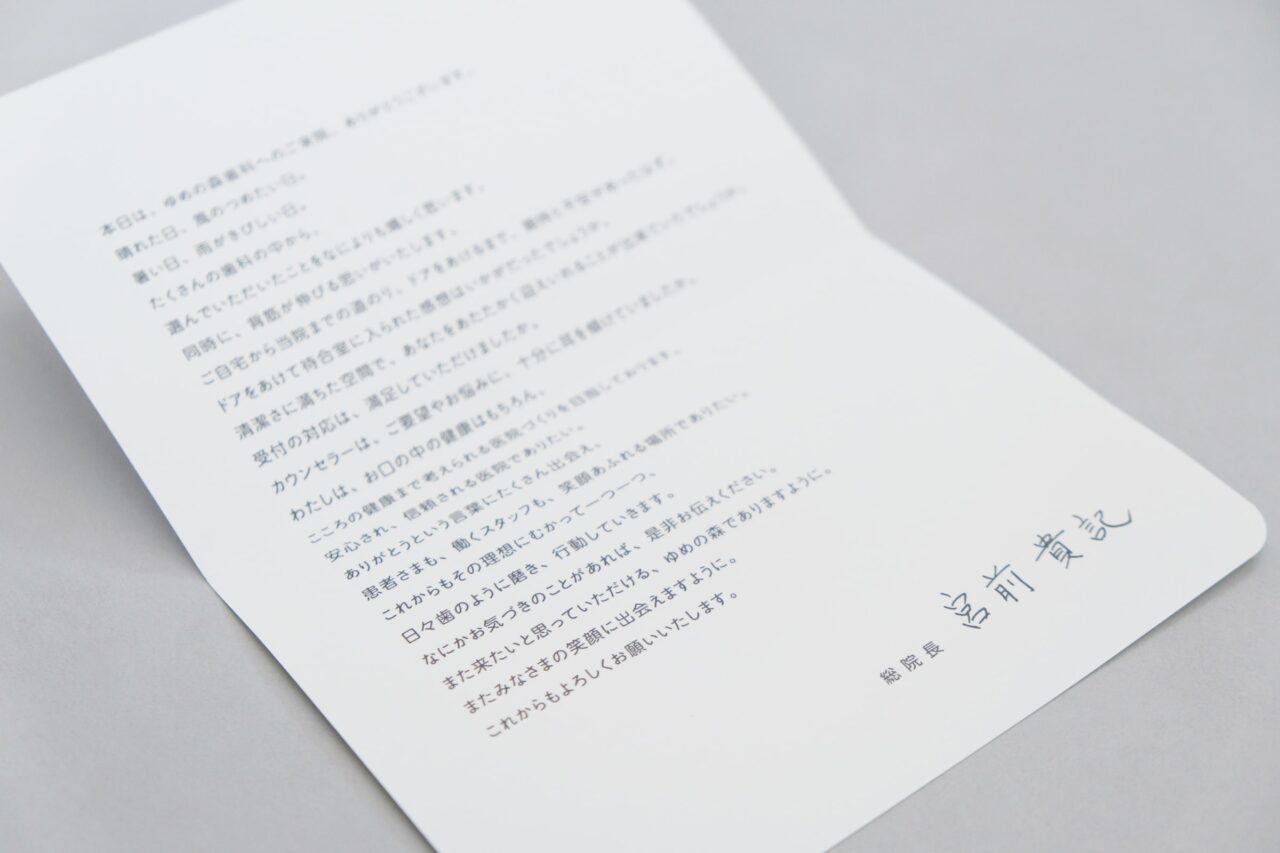 本日は、ゆめの森歯科へのご来院、ありがとうございます。
晴れた日、風のつめたい日。
暑い日、雨がきびしい日。
たくさんの歯科の中から、
選んでいただいたことをなによりも嬉しく思います。
同時に、背筋が伸びる思いがいたします。
ご自宅から当院までの道のり、ドアをあけるまで、緊張と不安があったはず。
ドアをあけて待合室に入られた感想はいかがだったでしょうか。
清潔さに満ちた空間で、あなたをあたたかく迎えいれることが出来ていたでしょうか。
受付の対応は、満足していただけましたか。
カウンセラーは、ご要望やお悩みに、十分に耳を傾けていましたか。
わたしは、お口の中の健康はもちろん、
こころの健康まで考えられる医院づくりを目指しております。
安心され、信頼される医院でありたい。
ありがとうという言葉にたくさん出会え、
患者さまも、働くスタッフも、笑顔あふれる場所でありたい。
これからもその理想にむかって一つ一つ、
日々歯のように磨き、行動していきます。
なにかお気づきのことがあれば、是非お伝えください。
また来たいと思っていただける、ゆめの森でありますように。
またみなさまの笑顔に出会えますように。
これからもよろしくお願いいたします。
総院長 宮前貴記